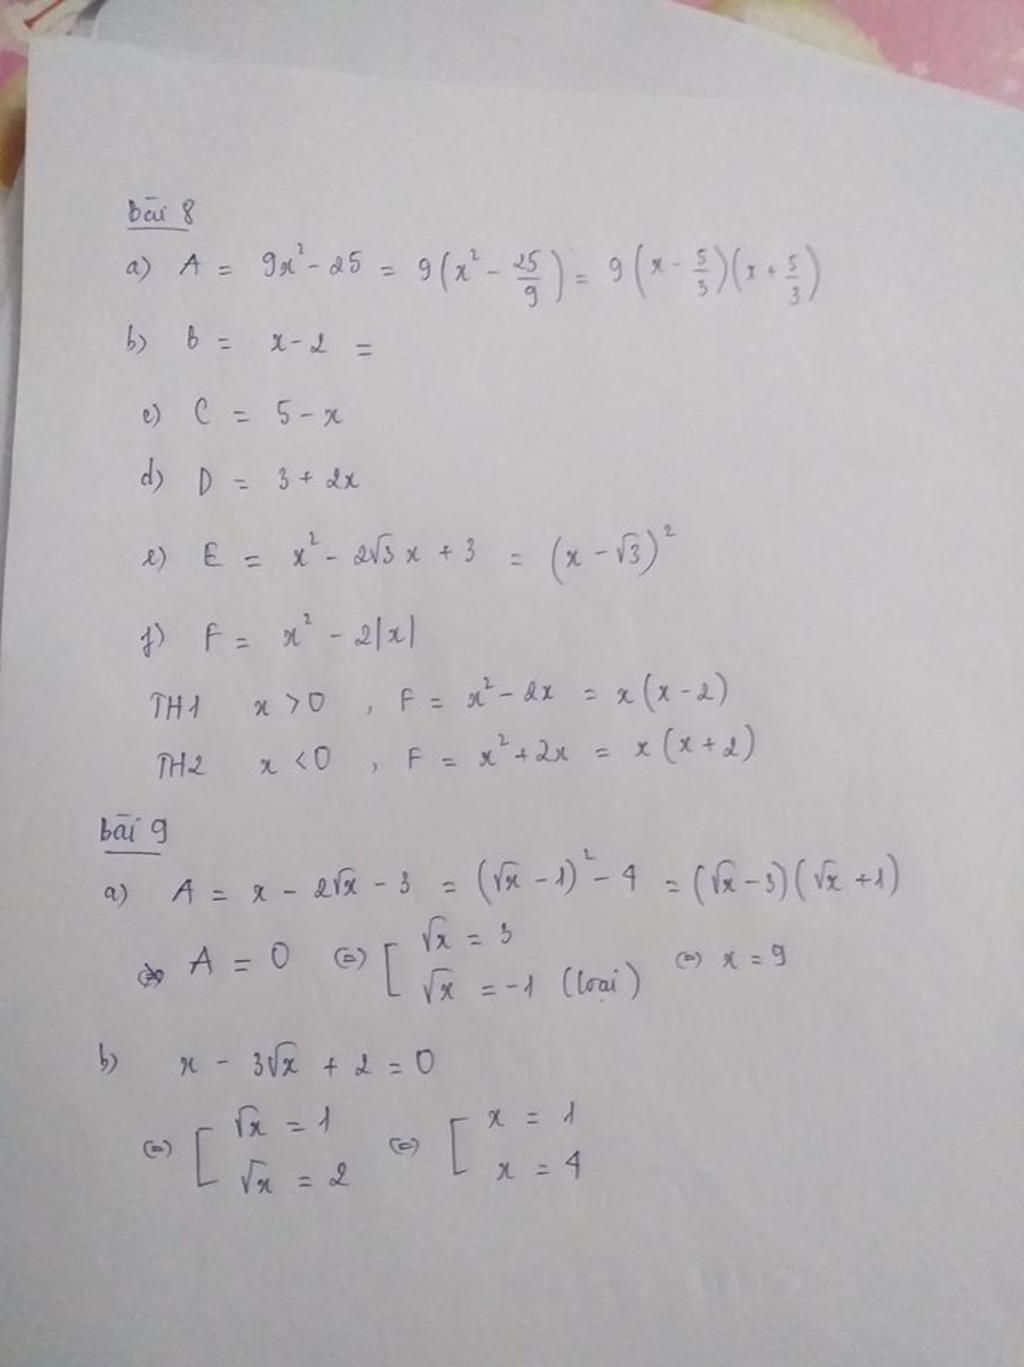 Bài 8
a) A = 9x² - 25 = 9(x² - 25/9) = 9(x - 5/3)(x + 5/3)
b) B = x - 2 =
c) C = 5 - x
d) D = 3 + 2x
e) E = x² - 2√3 x + 3 = (x - √3)²
f) F = x² - 2|x|
TH1 x > 0 , F = x² - 2x = x(x - 2)
TH2 x < 0 , F = x² + 2x = x(x + 2)
bài 9
a) A = x - 2√x - 3 = (√x - 1)² - 4 = (√x - 3)(√x + 1)
A = 0 (=) [ √x = 3
√x = -1 (loại) (=) x = 9
b) x - 3√x + 2 = 0
(=) [ √x = 1 (=) [ x = 1
√x = 2 x = 4